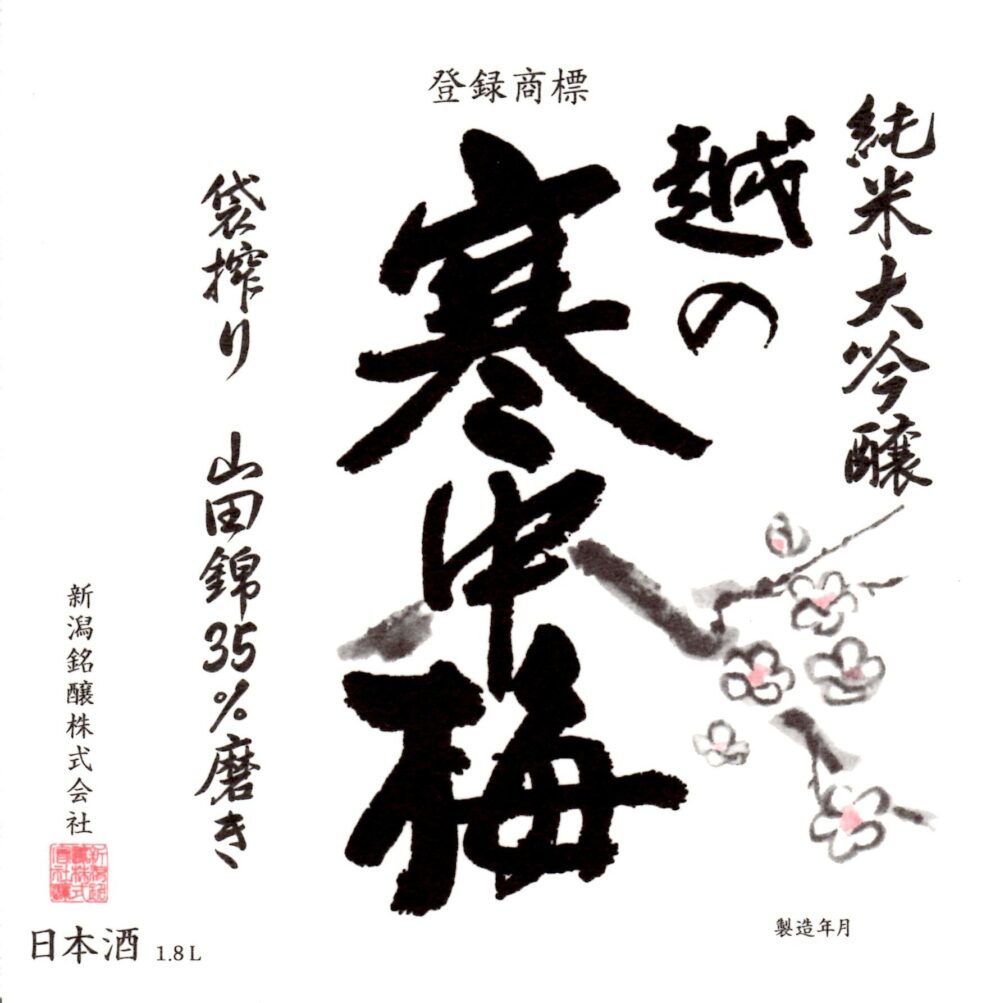 登録商標
純米大吟醸
越の
寒中梅
袋搾り 山田錦35%磨き
新潟銘醸株式会社
日本酒 1.8L
製造年月